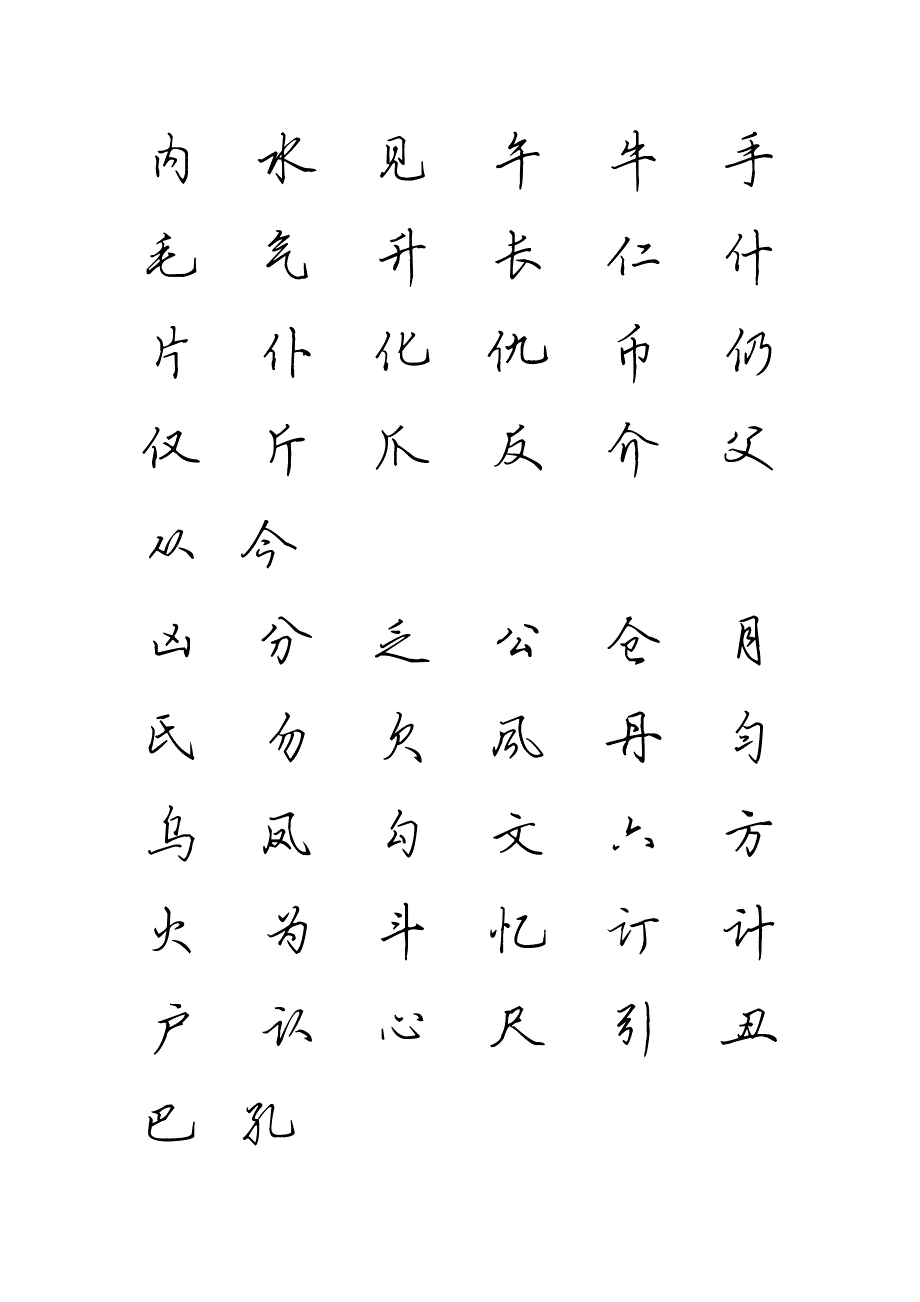 内 水 见 午 牛 手
毛 气 升 长 仁 什
片 仆 化 仇 币 仍
仅 斤 爪 反 介 父
从 今
凶 分 乏 公 仓 月
氏 勿 欠 风 丹 匀
乌 凤 勾 文 六 方
火 为 斗 忆 订 计
户 认 心 尺 引 丑
巴 孔